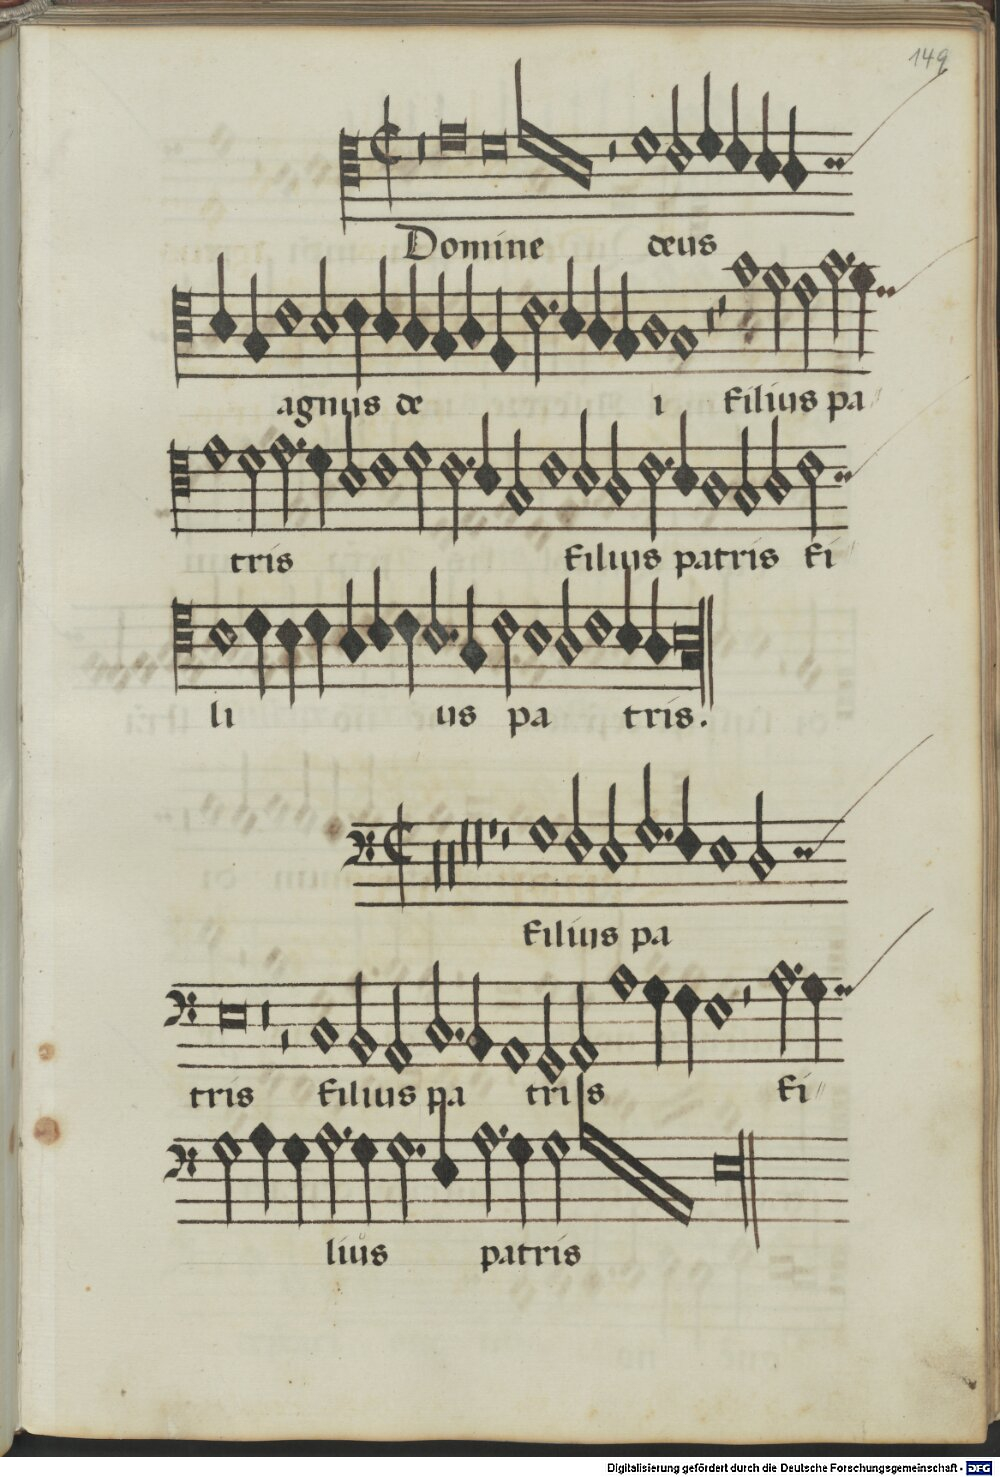 149
Domine deus
agnus de i filius pa
tris filius patris fi
li us pa tris.
filius pa
tris filius pa tris fi
lius patris
Digitalisierung gefördert durch die Deutsche Forschungsgemeinschaft - DFG